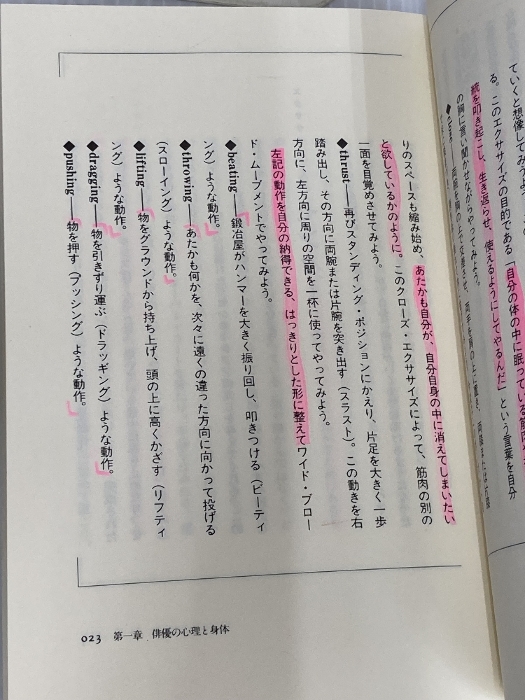 ていくと想像してみよう。
る。このエクササイズの目的である「自分の体の中に眠っている筋肉
統を叩き起こし、生き返らせ、使えるようにしてやるんだ」という言葉を自分
の胸に言い聞かせながらやってみよう。
りのスペースも縮み始め、あたかも自分が、自分自身の中に消えてしまいたい
と欲しているかのように。このクローズ・エクササイズによって、筋肉の別の
一面を目覚めさせてみよう。
◆thrust──再びスタンディング・ポジションにかえり、片足を大きく一歩
踏み出し、その方向に両腕または片腕を突き出す（スラスト）。この動きを右
方向に、左方向に周りの空間を一杯に使ってやってみよう。
左記の動作を自分の納得できる、はっきりとした形に整えてワイド・ブロー
ド・ムーブメントでやってみよう。
◆beating──鍛冶屋がハンマーを大きく振り回し、叩きつける（ビーティ
ング）ような動作。
◆throwing──あたかも何かを、次々に遠くの違った方向に向かって投げる
（スローイング）ような動作。
◆lifting──物をグラウンドから持ち上げ、頭の上に高くかざす（リフティ
ング）ような動作。
◆dragging──物を引きずり運ぶ（ドラッギング）ような動作。
◆pushing──物を押す（プッシング）ような動作。
023 第一章 俳優の心理と身体